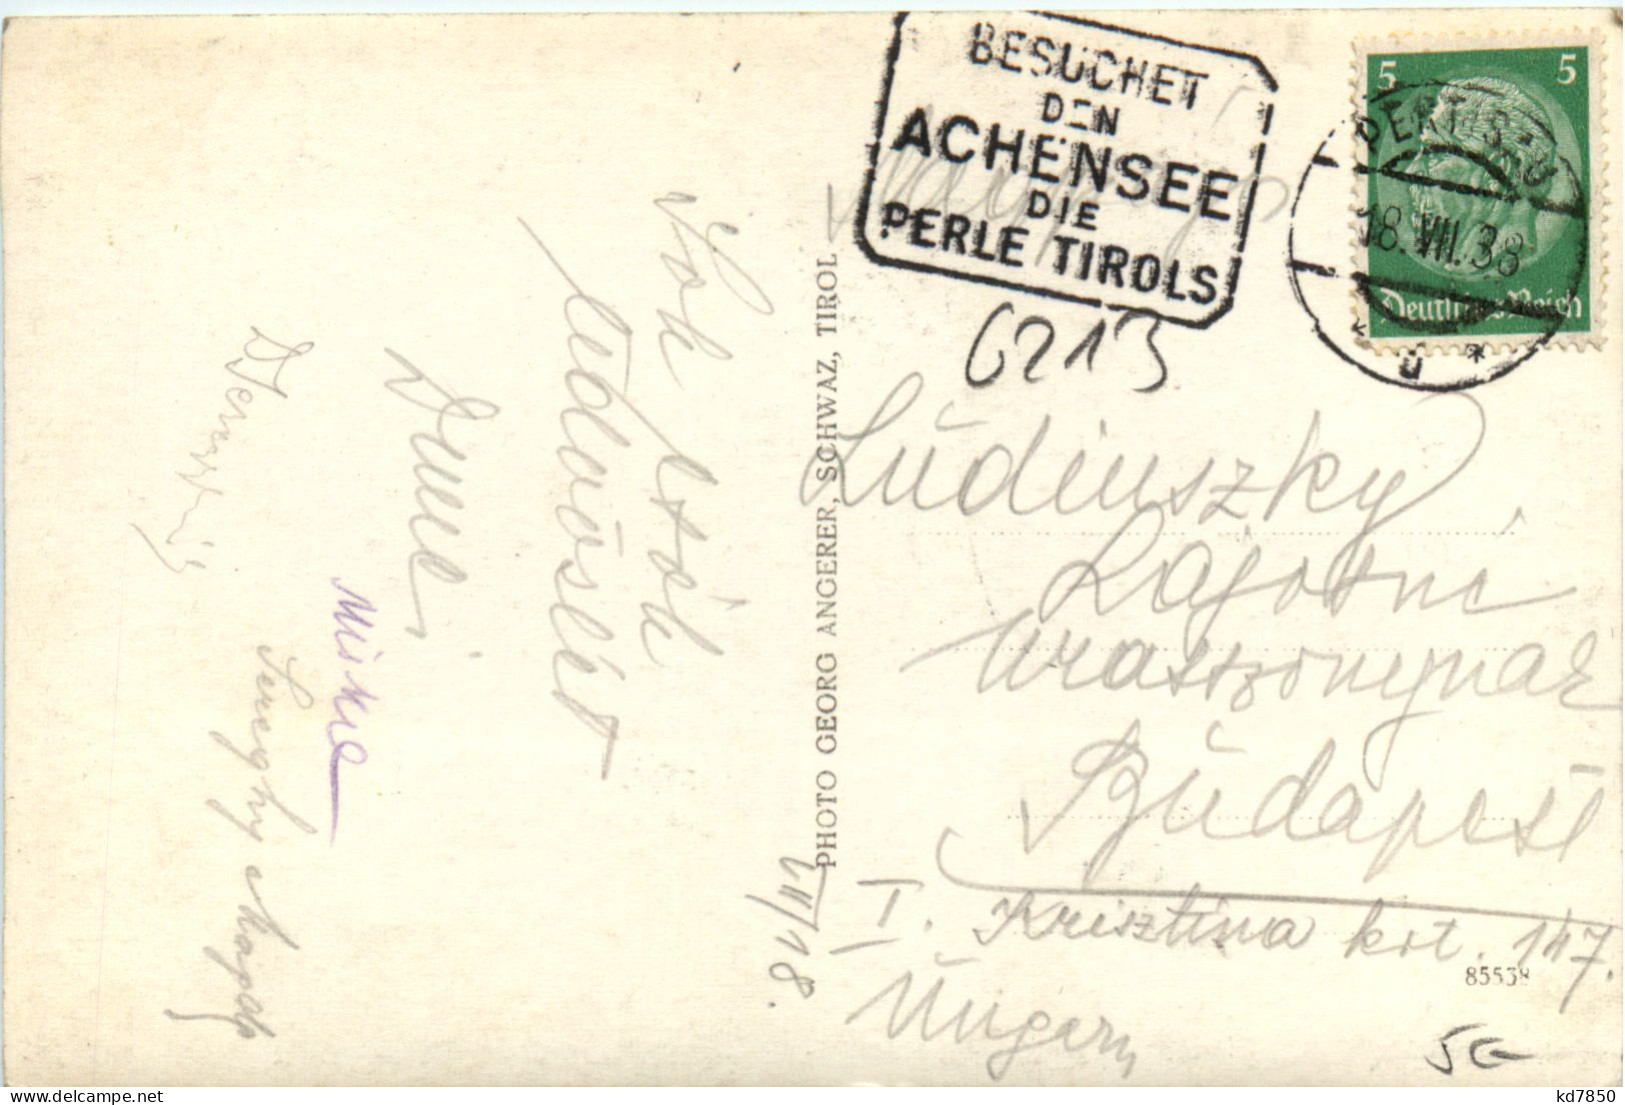 BESUCHET
DEN
ACHENSEE
DIE
PERLE TIROLS
5 5
PERTISAU
18. VII. 38
Deutsches Reich
ü *
6213
Nagys
Ludinszky
Lajosné
urasszonynak
Budapest
I. Krisztina krt. 147.
Ungarn
85538
5G
PHOTO GEORG ANGERER, SCHWAZ, TIROL
VII/18.
Sok szép
üdvözlet
Miske
kd7850